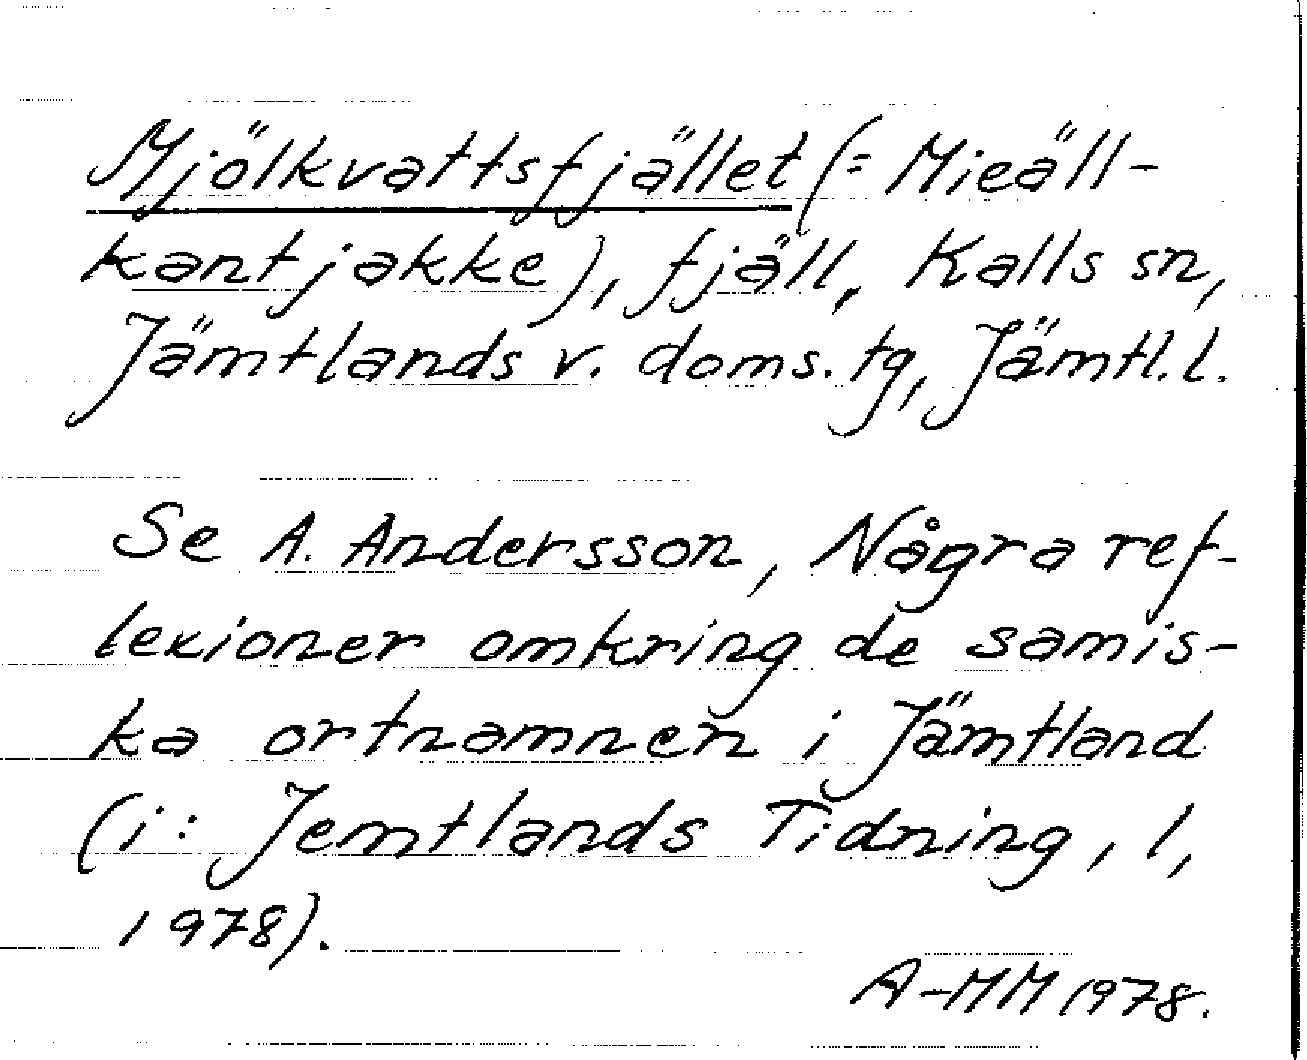 Mjölkvattsfjället (= Mieäll-
kantjakke), fjäll, Kalls sn,
Jämtlands v. doms. tg, Jämtl. l.
Se A. Andersson, Några ref-
lexioner omkring de samis-
ka ortnamnen i Jämtland
(i: Jemtlands Tidning, 1,
1978).
A-MM 1978.